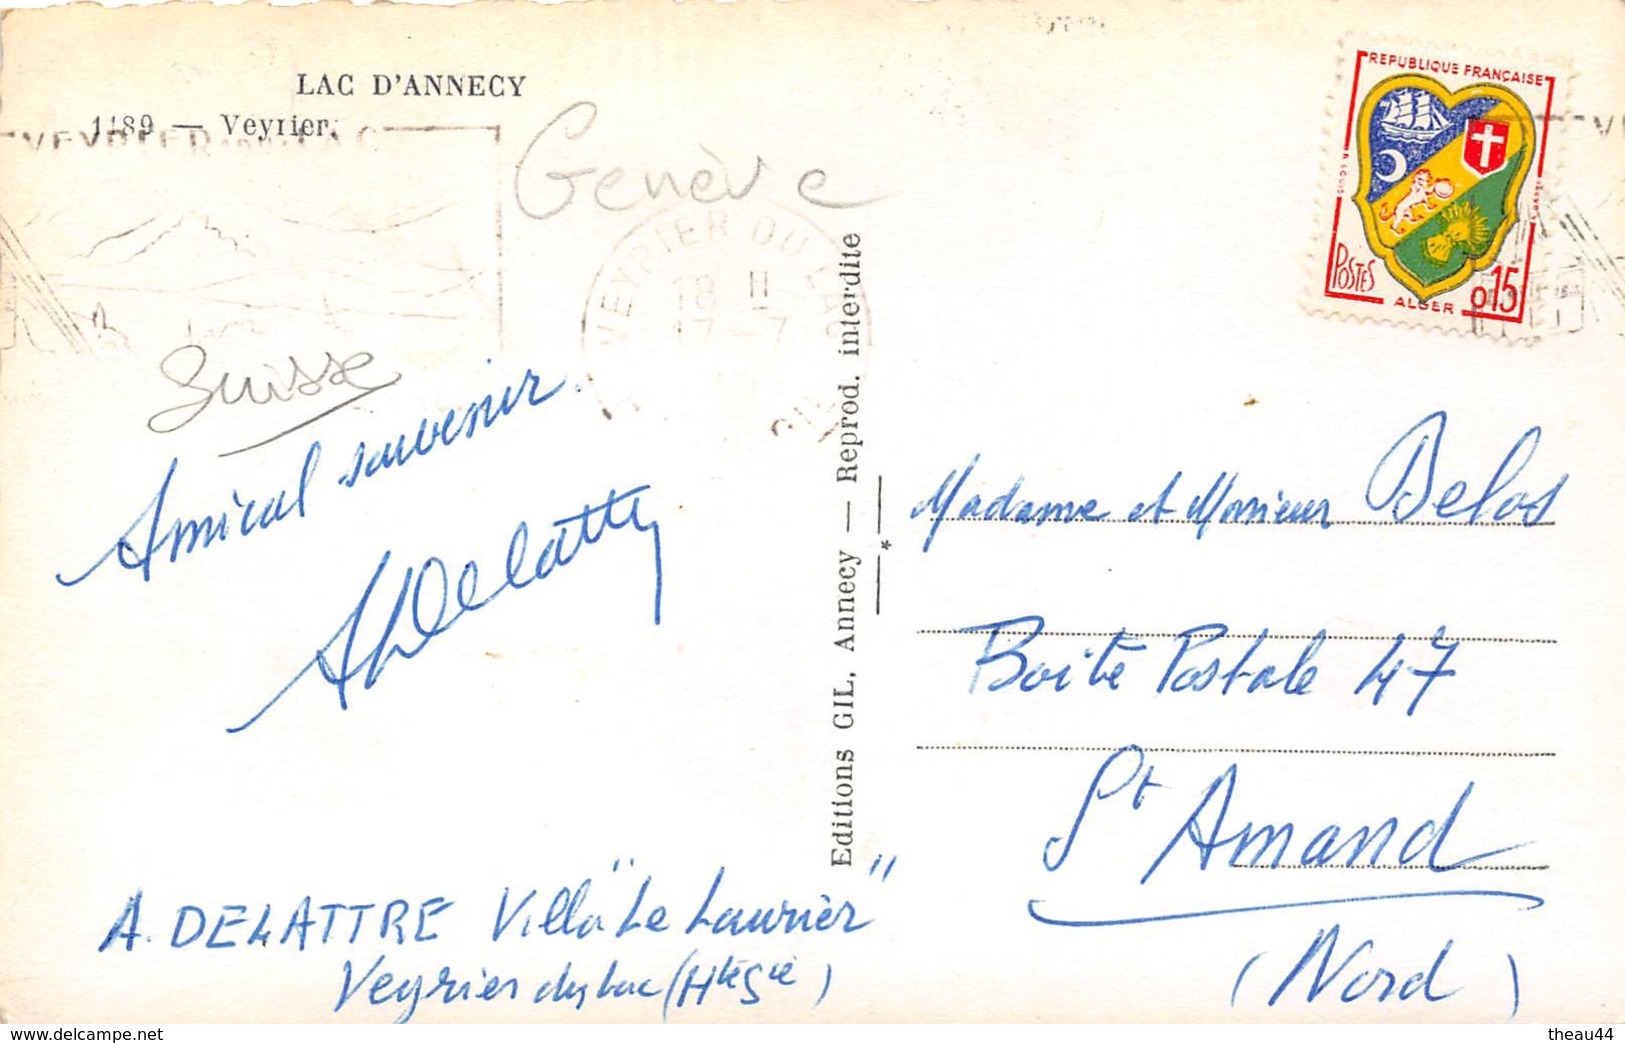 LAC D'ANNECY
1189 — Veyrier.
VEYRIER DU LAC
Genève
Suisse
VEYRIER DU LAC
18 H
17-7
REPUBLIQUE FRANÇAISE
POSTES
ALGER
0,15
Amical souvenir.
ADelattre
A. DELATTRE Villa "Le Laurier"
Veyrier du Lac (Hte Sie)
Editions GIL, Annecy — Reprod. interdite
Madame et Monsieur Belos
Boite Postale 47
St Amand
(Nord)
www.delcampe.net
theau44